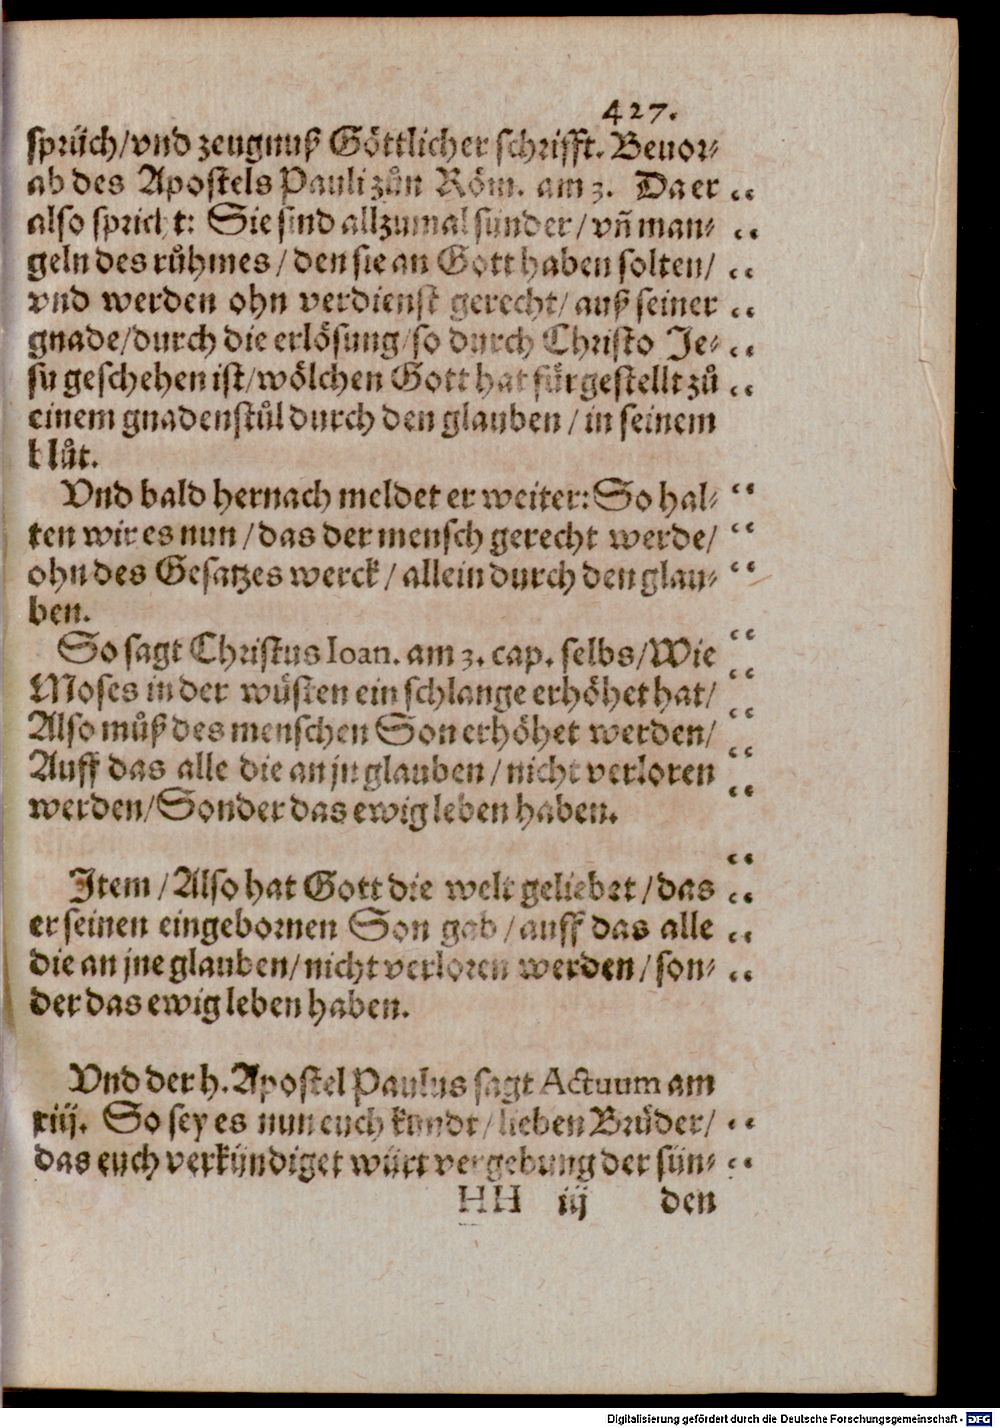 427.
sprüch/vnd zeugnuß Göttlicher schrifft. Beuor⸗
ab des Apostels Pauli zůn Röm. am 3. Da er
also spricht: Sie sind allzumal sünder/ vñ man⸗
geln des růhmes/ den sie an Gott haben solten/
vnd werden ohn verdienst gerecht/ auß seiner
gnade/durch die erlösung/so durch Christo Je⸗
su geschehen ist/wölchen Gott hat fürgestellt zů
einem gnadenstůl durch den glauben/ in seinem
blůt.
Vnd bald hernach meldet er weiter: So hal⸗
ten wir es nun/das der mensch gerecht werde/
ohn des Gesatzes werck/ allein durch den glau⸗
ben.
So sagt Christus Ioan. am 3. cap. selbs/Wie
Moses in der wüsten ein schlange erhöhet hat/
Also můß des menschen Son erhöhet werden/
Auff das alle die an jn glauben/ nicht verloren
werden/Sonder das ewig leben haben.
Item/Also hat Gott die welt geliebet/das
er seinen eingebornen Son gab/auff das alle
die an jne glauben/nicht verloren werden/son⸗
der das ewig leben haben.
Vnd der h. Apostel Paulus sagt Actuum am
xiij. So sey es nun euch kundt/lieben Brüder/
das euch verkündiget würt vergebung der sün⸗
HH iij den
Digitalisierung gefördert durch die Deutsche Forschungsgemeinschaft - DFG